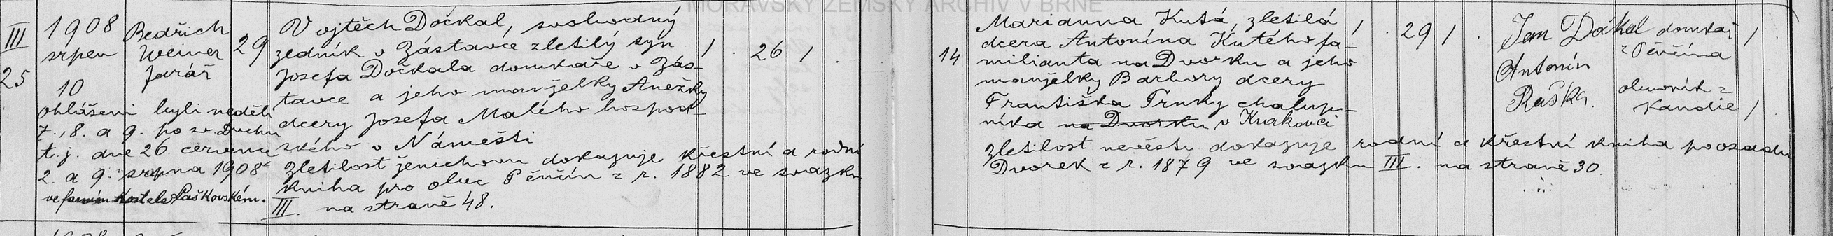 MORAVSKÝ ZEMSKÝ ARCHIV V BRNĚ
III
25
1908
srpen
10
ohlášeni byli neděli
7., 8. a 9. po sv. Duchu
t. j. dne 26 července
2. a 9. srpna 1908
ve farním kostele Laškovském.
Bedřich
Weiner
farář
29
Vojtěch Dočkal, svobodný
zedník v Zástavce zletilý syn
Josefa Dočkala domkaře v Zás-
tavce a jeho manželky Anežky
dcery Josefa Malého hospod-
ského v Náměšti
Zletilost ženichovu dokazuje křestní a rodní
kniha pro obec Pěnčín z r. 1882 ve svazku
III. na straně 48.
1 . 26 1
14
Marianna Kutá, zletilá
dcera Antonína Kutého fa-
milianta na Dvorku a jeho
manželky Barbory dcery
Františka Trnky chalup-
níka na Dvorku v Krakovci
zletilost nevěsty dokazuje rodní a křestní kniha pro osadu
Dvorek z r. 1879 ve svazku III. na straně 30.
1 . 29 1 .
Jan Dočkal domkař
z Pěnčína
Antonín
Raška
z
Kandie
1
1